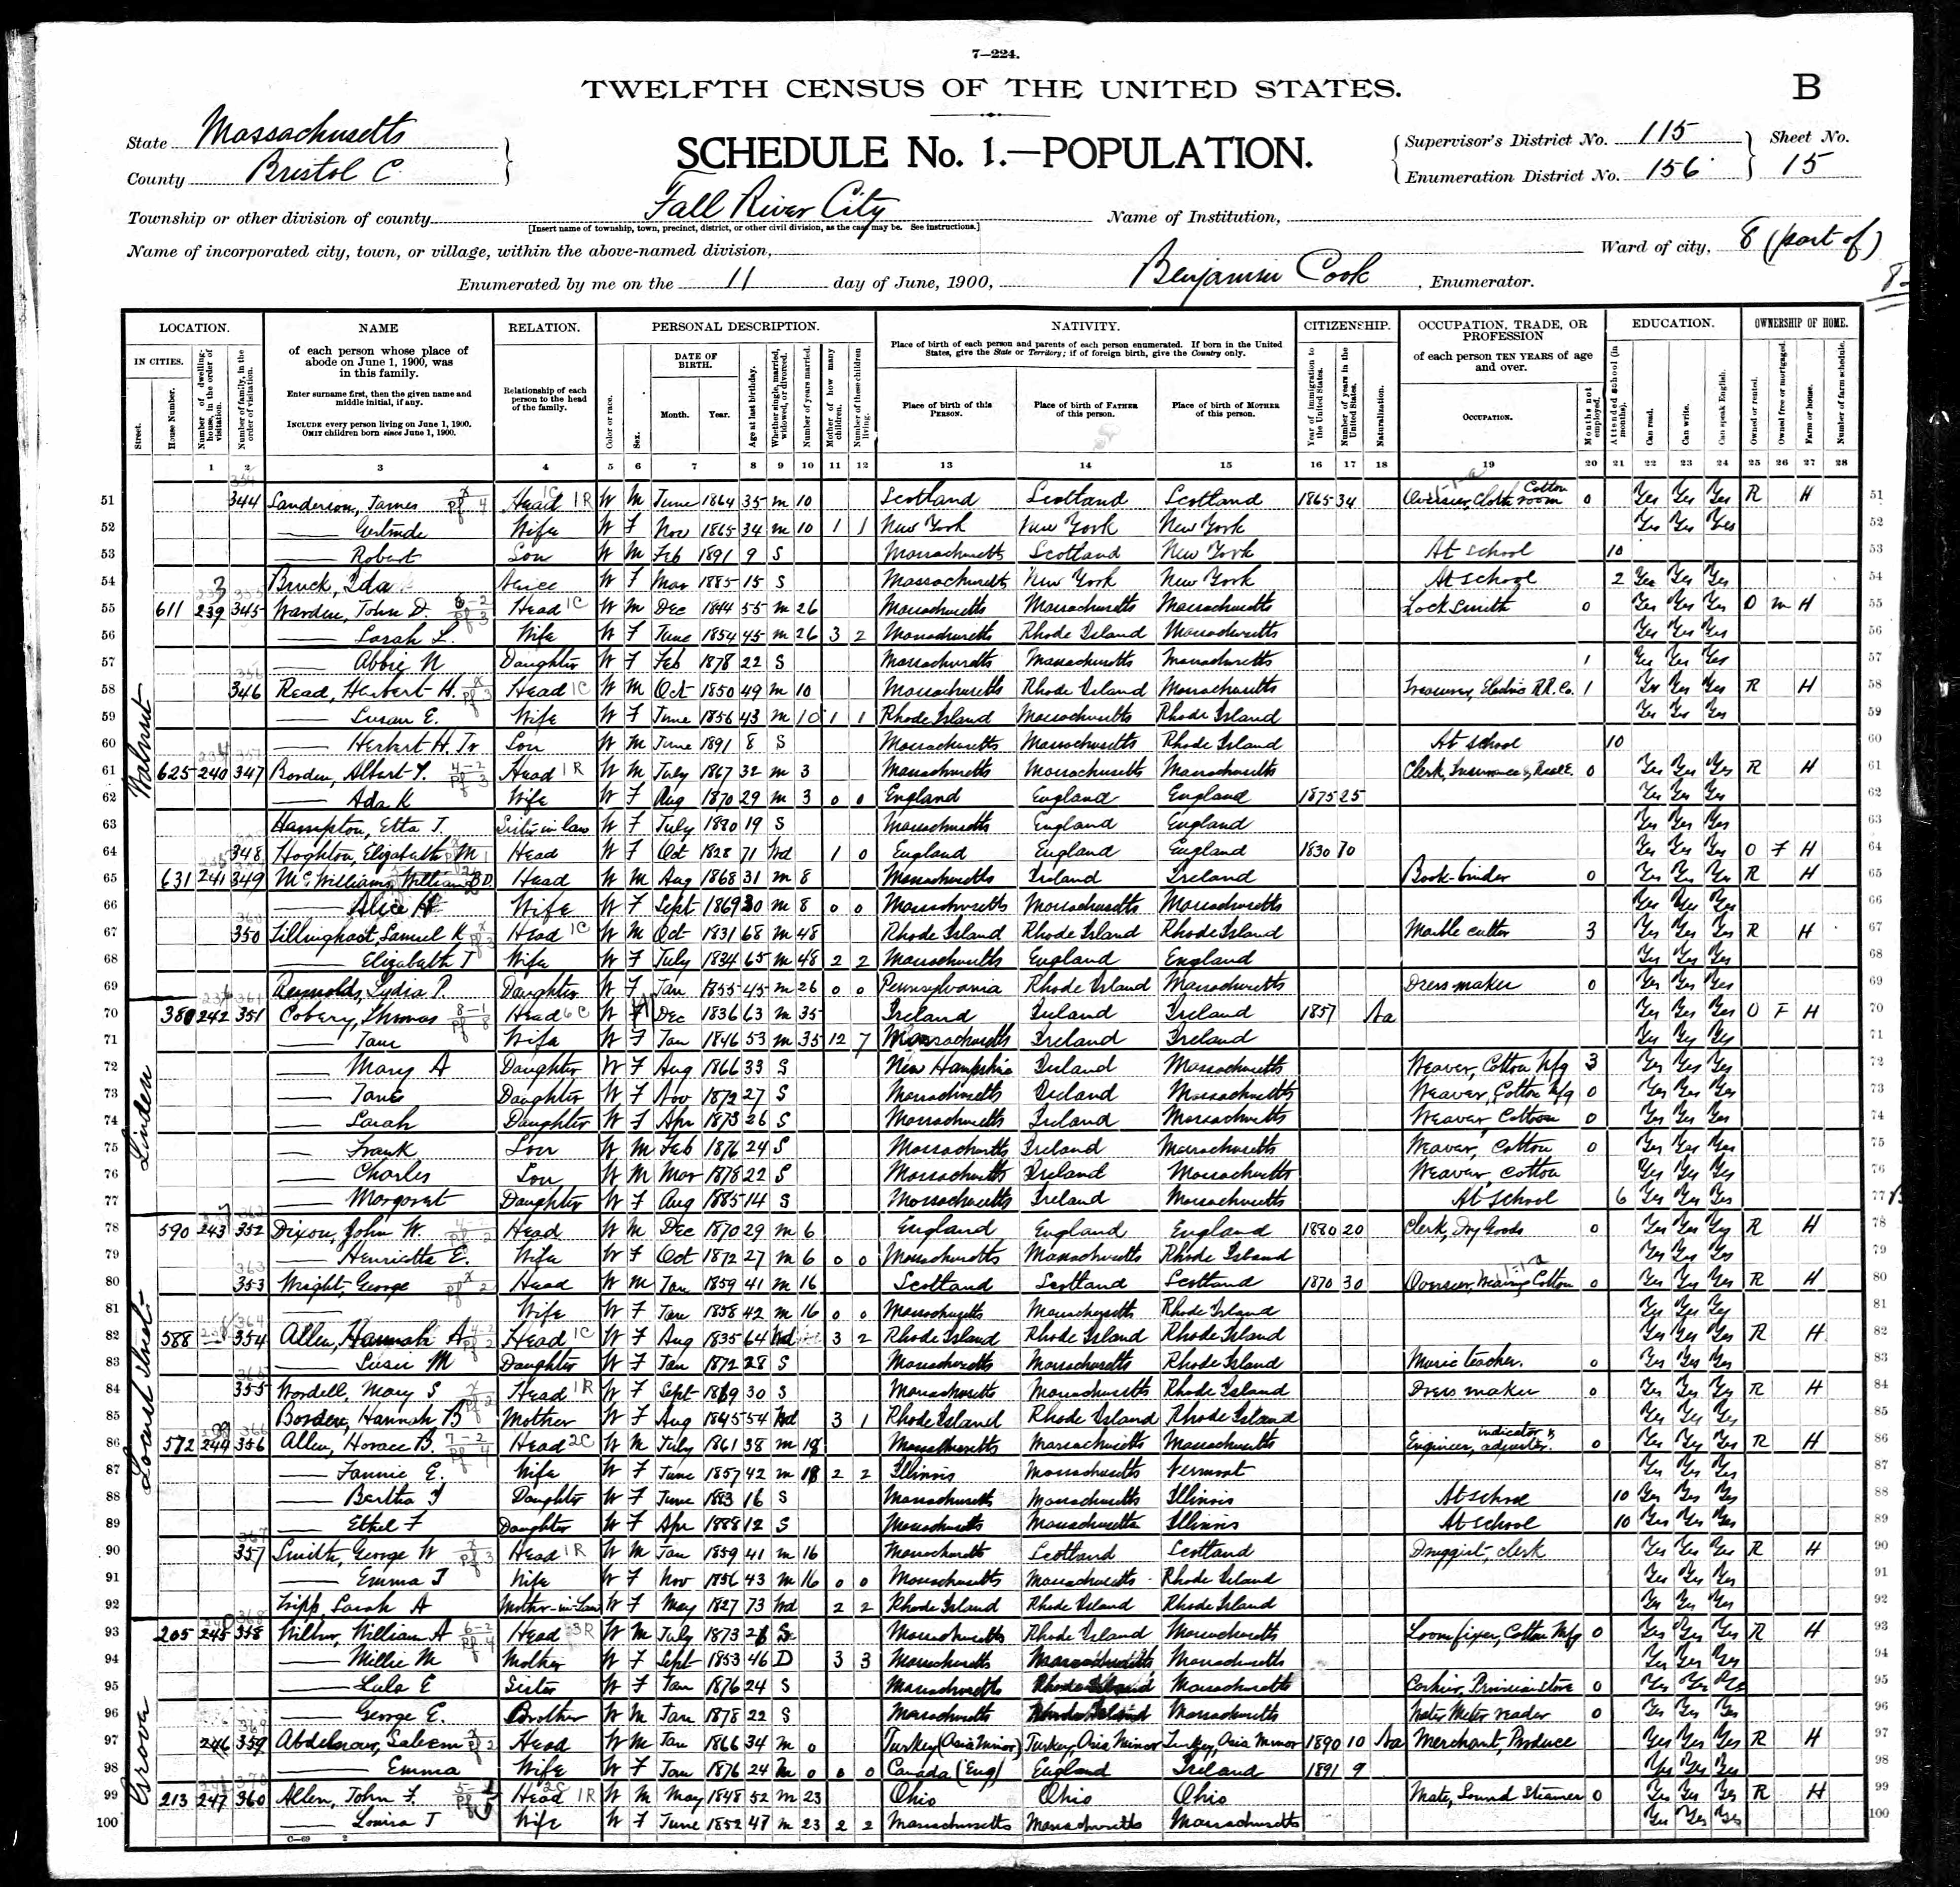 7—224.
TWELFTH CENSUS OF THE UNITED STATES.
B
State Massachusetts
County Bristol C.
SCHEDULE No. 1.—POPULATION.
Supervisor's District No. 115
Enumeration District No. 156
Sheet No.
15
Township or other division of county Fall River City
[Insert name of township, town, precinct, district, or other civil division, as the case may be. See instructions.]
Name of Institution,
Name of incorporated city, town, or village, within the above-named division,
Ward of city, 8 (part of)
Enumerated by me on the 11 day of June, 1900, Benjamin Cook, Enumerator.
LOCATION. NAME RELATION. PERSONAL DESCRIPTION. NATIVITY. CITIZENSHIP. OCCUPATION, TRADE, OR PROFESSION EDUCATION. OWNERSHIP OF HOME.
IN CITIES.
Street.
House Number.
Number of dwelling-house, in the order of visitation.
Number of family, in the order of visitation.
of each person whose place of abode on June 1, 1900, was in this family.
Enter surname first, then the given name and middle initial, if any.
INCLUDE every person living on June 1, 1900.
OMIT children born since June 1, 1900.
Relationship of each person to the head of the family.
Color or race.
Sex.
DATE OF BIRTH.
Month. Year.
Age at last birthday.
Whether single, married, widowed, or divorced.
Number of years married.
Mother of how many children.
Number of these children living.
Place of birth of each person and parents of each person enumerated. If born in the United States, give the State or Territory; if of foreign birth, give the Country only.
Place of birth of this PERSON.
Place of birth of FATHER of this person.
Place of birth of MOTHER of this person.
Year of immigration to the United States.
Number of years in the United States.
Naturalization.
of each person TEN YEARS of age and over.
OCCUPATION.
Months not employed.
Attended school (in months).
Can read.
Can write.
Can speak English.
Owned or rented.
Owned free or mortgaged.
Farm or house.
Number of farm schedule.
1 2 3 4 5 6 7 8 9 10 11 12 13 14 15 16 17 18 19 20 21 22 23 24 25 26 27 28
51 344 Sanderson, James Head W M June 1864 35 m 10 Scotland Scotland Scotland 1865 34 Overseer, Cloth room Cotton 0 Yes Yes Yes R H 51
52 Gertrude Wife W F Nov 1865 34 m 10 1 1 New York New York New York Yes Yes Yes 52
53 Robert Son W M Feb 1891 9 S Massachusetts Scotland New York At school 10 53
54 Ida Niece W F Mar 1885 15 S Massachusetts New York New York At school 2 Yes Yes Yes 54
55 611 239 345 Warden, John D. Head W M Dec 1844 55 m 26 Massachusetts Massachusetts Massachusetts Locksmith 0 Yes Yes Yes O m H 55
56 Sarah L. Wife W F June 1854 45 m 26 3 2 Massachusetts Rhode Island Massachusetts Yes Yes Yes 56
57 Abbie N Daughter W F Feb 1878 22 S Massachusetts Massachusetts Massachusetts 1 Yes Yes Yes 57
58 346 Read, Herbert H. Head W M Oct 1850 49 m 10 Massachusetts Rhode Island Massachusetts Treasurer, Electric R.R. Co. 1 Yes Yes Yes R H 58
59 Susan E. Wife W F June 1856 43 m 10 1 1 Rhode Island Massachusetts Rhode Island Yes Yes Yes 59
60 Herbert H. Jr Son W M June 1891 8 S Massachusetts Massachusetts Rhode Island At school 10 60
Walnut
61 625 240 347 Borden, Albert F. Head W M July 1867 32 m 3 Massachusetts Massachusetts Massachusetts Clerk, Insurance & Real E. 0 Yes Yes Yes R H 61
62 Ada K Wife W F Aug 1870 29 m 3 0 0 England England England 1875 25 Yes Yes Yes 62
63 Hampton, Etta J. Sister in law W F July 1880 19 S Massachusetts England England Yes Yes Yes 63
64 348 Hoghton, Elizabeth M Head W F Oct 1828 71 Wd 1 0 England England England 1830 70 Yes Yes Yes O F H 64
65 631 241 349 McWilliams, William B D Head W M Aug 1868 31 m 8 Massachusetts Ireland Ireland Book-binder 0 Yes Yes Yes R H 65
66 Alice H Wife W F Sept 1869 30 m 8 0 0 Massachusetts Massachusetts Massachusetts Yes Yes Yes 66
67 350 Tillinghast, Samuel K Head W M Oct 1831 68 m 48 Rhode Island Rhode Island Rhode Island Marble cutter 3 Yes Yes Yes R H 67
68 Elizabeth T Wife W F July 1834 65 m 48 2 2 Massachusetts England England Yes Yes Yes 68
69 Reynolds, Lydia P. Daughter W F Jan 1855 45 m 26 0 0 Pennsylvania Rhode Island Massachusetts Dressmaker 0 Yes Yes Yes 69
70 380 242 351 Cobery, Thomas Head W M Dec 1836 63 m 35 Ireland Ireland Ireland 1857 Na Yes Yes Yes O F H 70
71 Jane Wife W F Jan 1846 53 m 35 12 7 Massachusetts Ireland Ireland Yes Yes Yes 71
72 Mary A Daughter W F Aug 1866 33 S New Hampshire Ireland Massachusetts Weaver, Cotton Mfg 3 Yes Yes Yes 72
73 Jane Daughter W F Nov 1872 27 S Massachusetts Ireland Massachusetts Weaver, Cotton Mfg 0 Yes Yes Yes 73
Linden
74 Sarah Daughter W F Apr 1873 26 S Massachusetts Ireland Massachusetts Weaver Cotton 0 Yes Yes Yes 74
75 Frank Son W M Feb 1876 24 S Massachusetts Ireland Massachusetts Weaver, Cotton 0 Yes Yes Yes 75
76 Charles Son W M Mar 1878 22 S Massachusetts Ireland Massachusetts Weaver, Cotton Yes Yes Yes 76
77 Margaret Daughter W F Aug 1885 14 S Massachusetts Ireland Massachusetts At school 6 Yes Yes Yes 77
78 590 243 352 Dixon, John W. Head W M Dec 1870 29 m 6 England England England 1880 20 Clerk, Dry Goods 0 Yes Yes Yes R H 78
79 Henrietta E. Wife W F Oct 1872 27 m 6 0 0 Massachusetts Massachusetts Rhode Island Yes Yes Yes 79
80 353 Wright, George Head W M Jan 1859 41 m 16 Scotland Scotland Scotland 1870 30 Overseer, Weaving Cotton 0 Yes Yes Yes R H 80
81 Wife W F Jan 1858 42 m 16 0 0 Massachusetts Massachusetts Rhode Island Yes Yes Yes 81
82 588 354 Allen, Hannah A Head W F Aug 1835 64 Wd 3 2 Rhode Island Rhode Island Rhode Island Yes Yes Yes R H 82
83 Susie M Daughter W F Jan 1872 28 S Massachusetts Massachusetts Rhode Island Music teacher. 0 Yes Yes Yes 83
Locust Street
84 355 Wordell, Mary S Head W F Sept 1869 30 S Massachusetts Massachusetts Rhode Island Dress maker 0 Yes Yes Yes R H 84
85 Borden, Hannah B Mother W F Aug 1845 54 Wd 3 1 Rhode Island Rhode Island Rhode Island Yes Yes Yes 85
86 572 244 356 Allen, Horace B. Head W M July 1861 38 m 18 Massachusetts Massachusetts Massachusetts Engineer, indicator & adjuster. 0 Yes Yes Yes R H 86
87 Fannie E. Wife W F June 1857 42 m 18 2 2 Illinois Massachusetts Vermont Yes Yes Yes 87
88 Bertha F Daughter W F June 1883 16 S Massachusetts Massachusetts Illinois At school 10 Yes Yes Yes 88
89 Ethel F Daughter W F Apr 1888 12 S Massachusetts Massachusetts Illinois At school 10 Yes Yes Yes 89
90 357 Smith, George W Head W M Jan 1859 41 m 16 Massachusetts Scotland Scotland Druggist, clerk Yes Yes Yes R H 90
91 Emma J Wife W F Nov 1856 43 m 16 0 0 Massachusetts Massachusetts Rhode Island Yes Yes Yes 91
92 Tripp, Sarah A Mother-in-Law W F May 1827 73 Wd 2 2 Rhode Island Rhode Island Rhode Island Yes Yes Yes 92
93 205 245 358 Wilbur, William A Head W M July 1873 26 S Massachusetts Rhode Island Massachusetts Loom fixer, Cotton Mfg 0 Yes Yes Yes R H 93
94 Millie M Mother W F Sept 1853 46 D 3 3 Massachusetts Massachusetts Massachusetts Yes Yes Yes 94
95 Lula E Sister W F Jan 1876 24 S Massachusetts Rhode Island Massachusetts Cashier, Provision Store 0 Yes Yes Yes 95
96 George E. Brother W M Jan 1878 22 S Massachusetts Rhode Island Massachusetts Water Meter reader 0 Yes Yes Yes 96
97 246 359 Saleem Head W M Jan 1866 34 m 0 Turkey (Asia Minor) Turkey, Asia Minor Turkey, Asia Minor 1890 10 Na Merchant, Produce Yes Yes Yes R H 97
98 Emma Wife W F Jan 1876 24 m 0 0 0 Canada (Eng) England Ireland 1891 9 Yes Yes Yes 98
99 213 247 360 Allen, John F. Head W M May 1848 52 m 23 Ohio Ohio Ohio Mate, Sound Steamer 0 Yes Yes Yes R H 99
100 Louisa T Wife W F June 1852 47 m 23 2 2 Massachusetts Massachusetts Massachusetts Yes Yes Yes 100
C—69 2